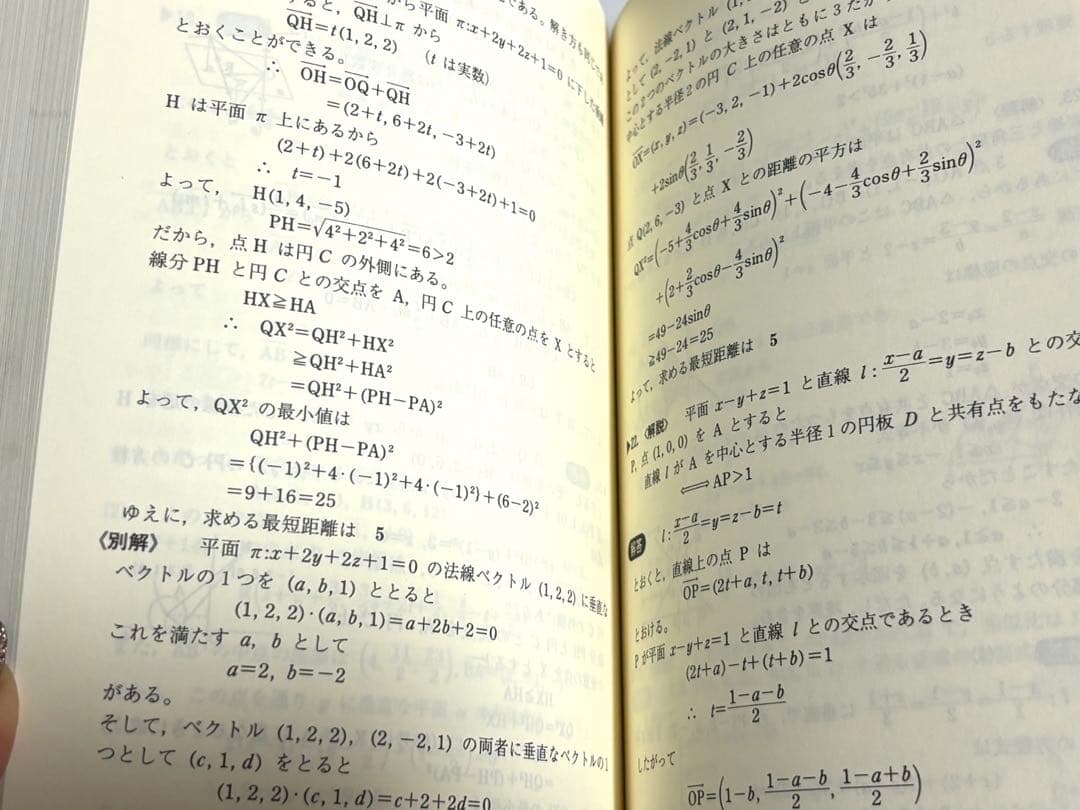 から平面 π:x+2y+2z+1=0 に下した
である。解き方も同じでは
すると, QH⊥π から
QH=t(1, 2, 2) (t は実数)
とおくことができる。
∴ OH=OQ+QH
=(2+t, 6+2t, −3+2t)
H は平面 π 上にあるから
(2+t)+2(6+2t)+2(−3+2t)+1=0
∴ t=−1
よって, H(1, 4, −5)
PH=√4²+2²+4²=6>2
だから, 点 H は円 C の外側にある。
線分 PH と円 C との交点を A, 円 C 上の任意の点を X とすると
HX≧HA
∴ QX²=QH²+HX²
≧QH²+HA²
=QH²+(PH−PA)²
よって, QX² の最小値は
QH²+(PH−PA)²
={(−1)²+4·(−1)²+4·(−1)²}+(6−2)²
=9+16=25
ゆえに, 求める最短距離は 5
《別解》 平面 π:x+2y+2z+1=0 の法線ベクトル (1, 2, 2) に垂直な
ベクトルの1つを (a, b, 1) ととると
(1, 2, 2)·(a, b, 1)=a+2b+2=0
これを満たす a, b として
a=2, b=−2
がある。
そして, ベクトル (1, 2, 2), (2, −2, 1) の両者に垂直なベクトルの1
つとして (c, 1, d) をとると
(1, 2, 2)·(c, 1, d)=c+2+2d=0
よって, 法線ベクトル (1,
として (2, −2, 1) と (2, 1, −2) と
この2つのベクトルの大きさはともに3だか
中心とする半径2の円 C 上の任意の点 X は
OX=(x, y, z)=(−3, 2, −1)+2cosθ(2/3, −2/3, 1/3)
+2sinθ(2/3, 1/3, −2/3)
点 Q(2, 6, −3) と点 X との距離の平方は
QX²=(−5+4/3cosθ+4/3sinθ)²+(−4−4/3cosθ+2/3sinθ)²
+(2+2/3cosθ−4/3sinθ)²
=49−24sinθ
≧49−24=25
よって, 求める最短距離は 5
▶22. 《解説》 平面 x−y+z=1 と直線 l: x−a/2=y=z−b との交
P, 点 (1, 0, 0) を A とすると
直線 l が A を中心とする半径1の円板 D と共有点をもたな
⟺AP>1
解答 l: x−a/2=y=z−b=t
とおくと, 直線上の点 P は
OP=(2t+a, t, t+b)
とおける。
P が平面 x−y+z=1 と直線 l との交点であるとき
(2t+a)−t+(t+b)=1
∴ t=1−a−b/2
したがって
OP=(1−b, 1−a−b/2, 1−a+b/2)